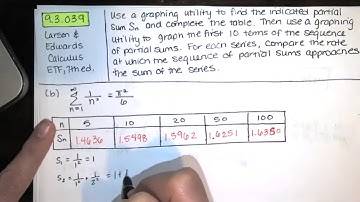 9.3.039
Larson &
Edwards
Calculus
ETF, 7th ed.
Use a graphing utility to find the indicated partial
sum Sn and complete the table. Then use a graphing
utility to graph the first 10 terms of the sequence
of partial sums. For each series, compare the rate
at which the sequence of partial sums approaches
the sum of the series.
(b) ∞ Σ n=1 1/n² = π²/6
n 5 10 20 50 100
Sn 1.4636 1.5498 1.5962 1.6251 1.6350
S₁ = 1/1² = 1
S₂ = 1/1² + 1/2² = 1 +